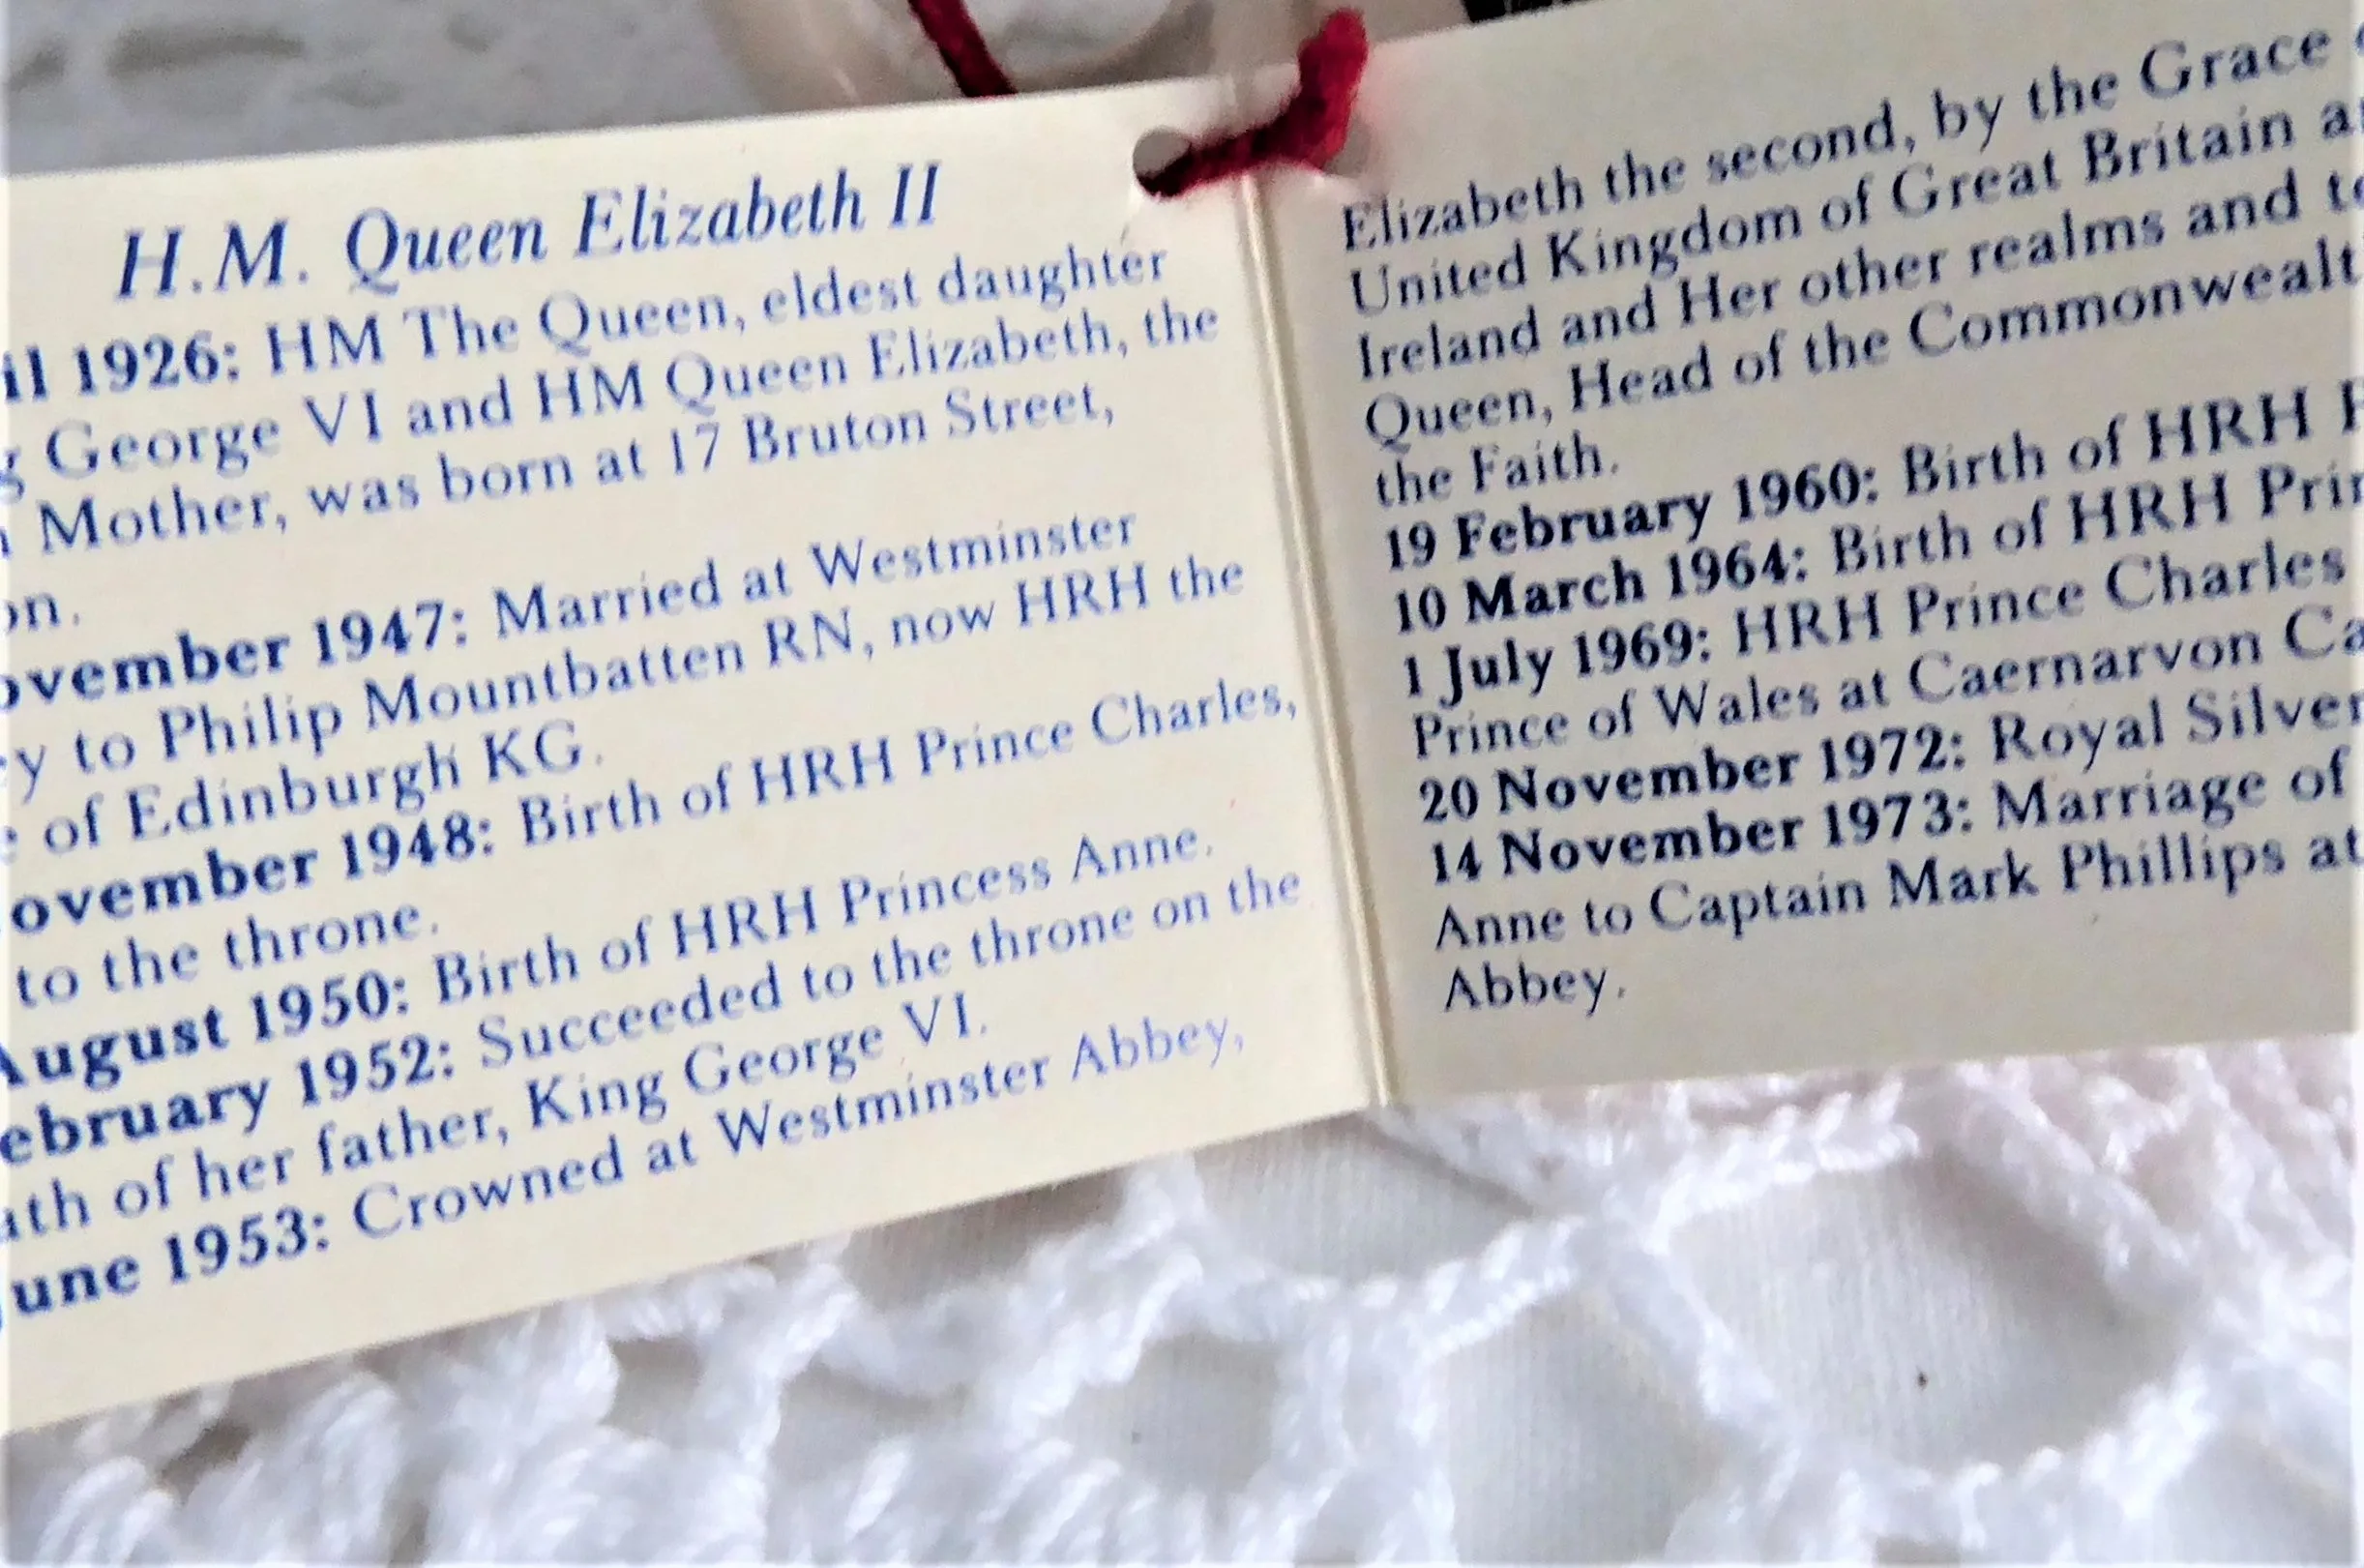 H.M. Queen Elizabeth II
il 1926: HM The Queen, eldest daughter
g George VI and HM Queen Elizabeth, the
Mother, was born at 17 Bruton Street,
on.
ovember 1947: Married at Westminster
ey to Philip Mountbatten RN, now HRH the
e of Edinburgh KG.
ovember 1948: Birth of HRH Prince Charles,
to the throne.
August 1950: Birth of HRH Princess Anne.
ebruary 1952: Succeeded to the throne on the
ath of her father, King George VI.
June 1953: Crowned at Westminster Abbey,
Elizabeth the second, by the Grace
United Kingdom of Great Britain a
Ireland and Her other realms and te
Queen, Head of the Commonwealt
the Faith.
19 February 1960: Birth of HRH P
10 March 1964: Birth of HRH Prin
1 July 1969: HRH Prince Charles
Prince of Wales at Caernarvon Ca
20 November 1972: Royal Silver
14 November 1973: Marriage of
Anne to Captain Mark Phillips at
Abbey.